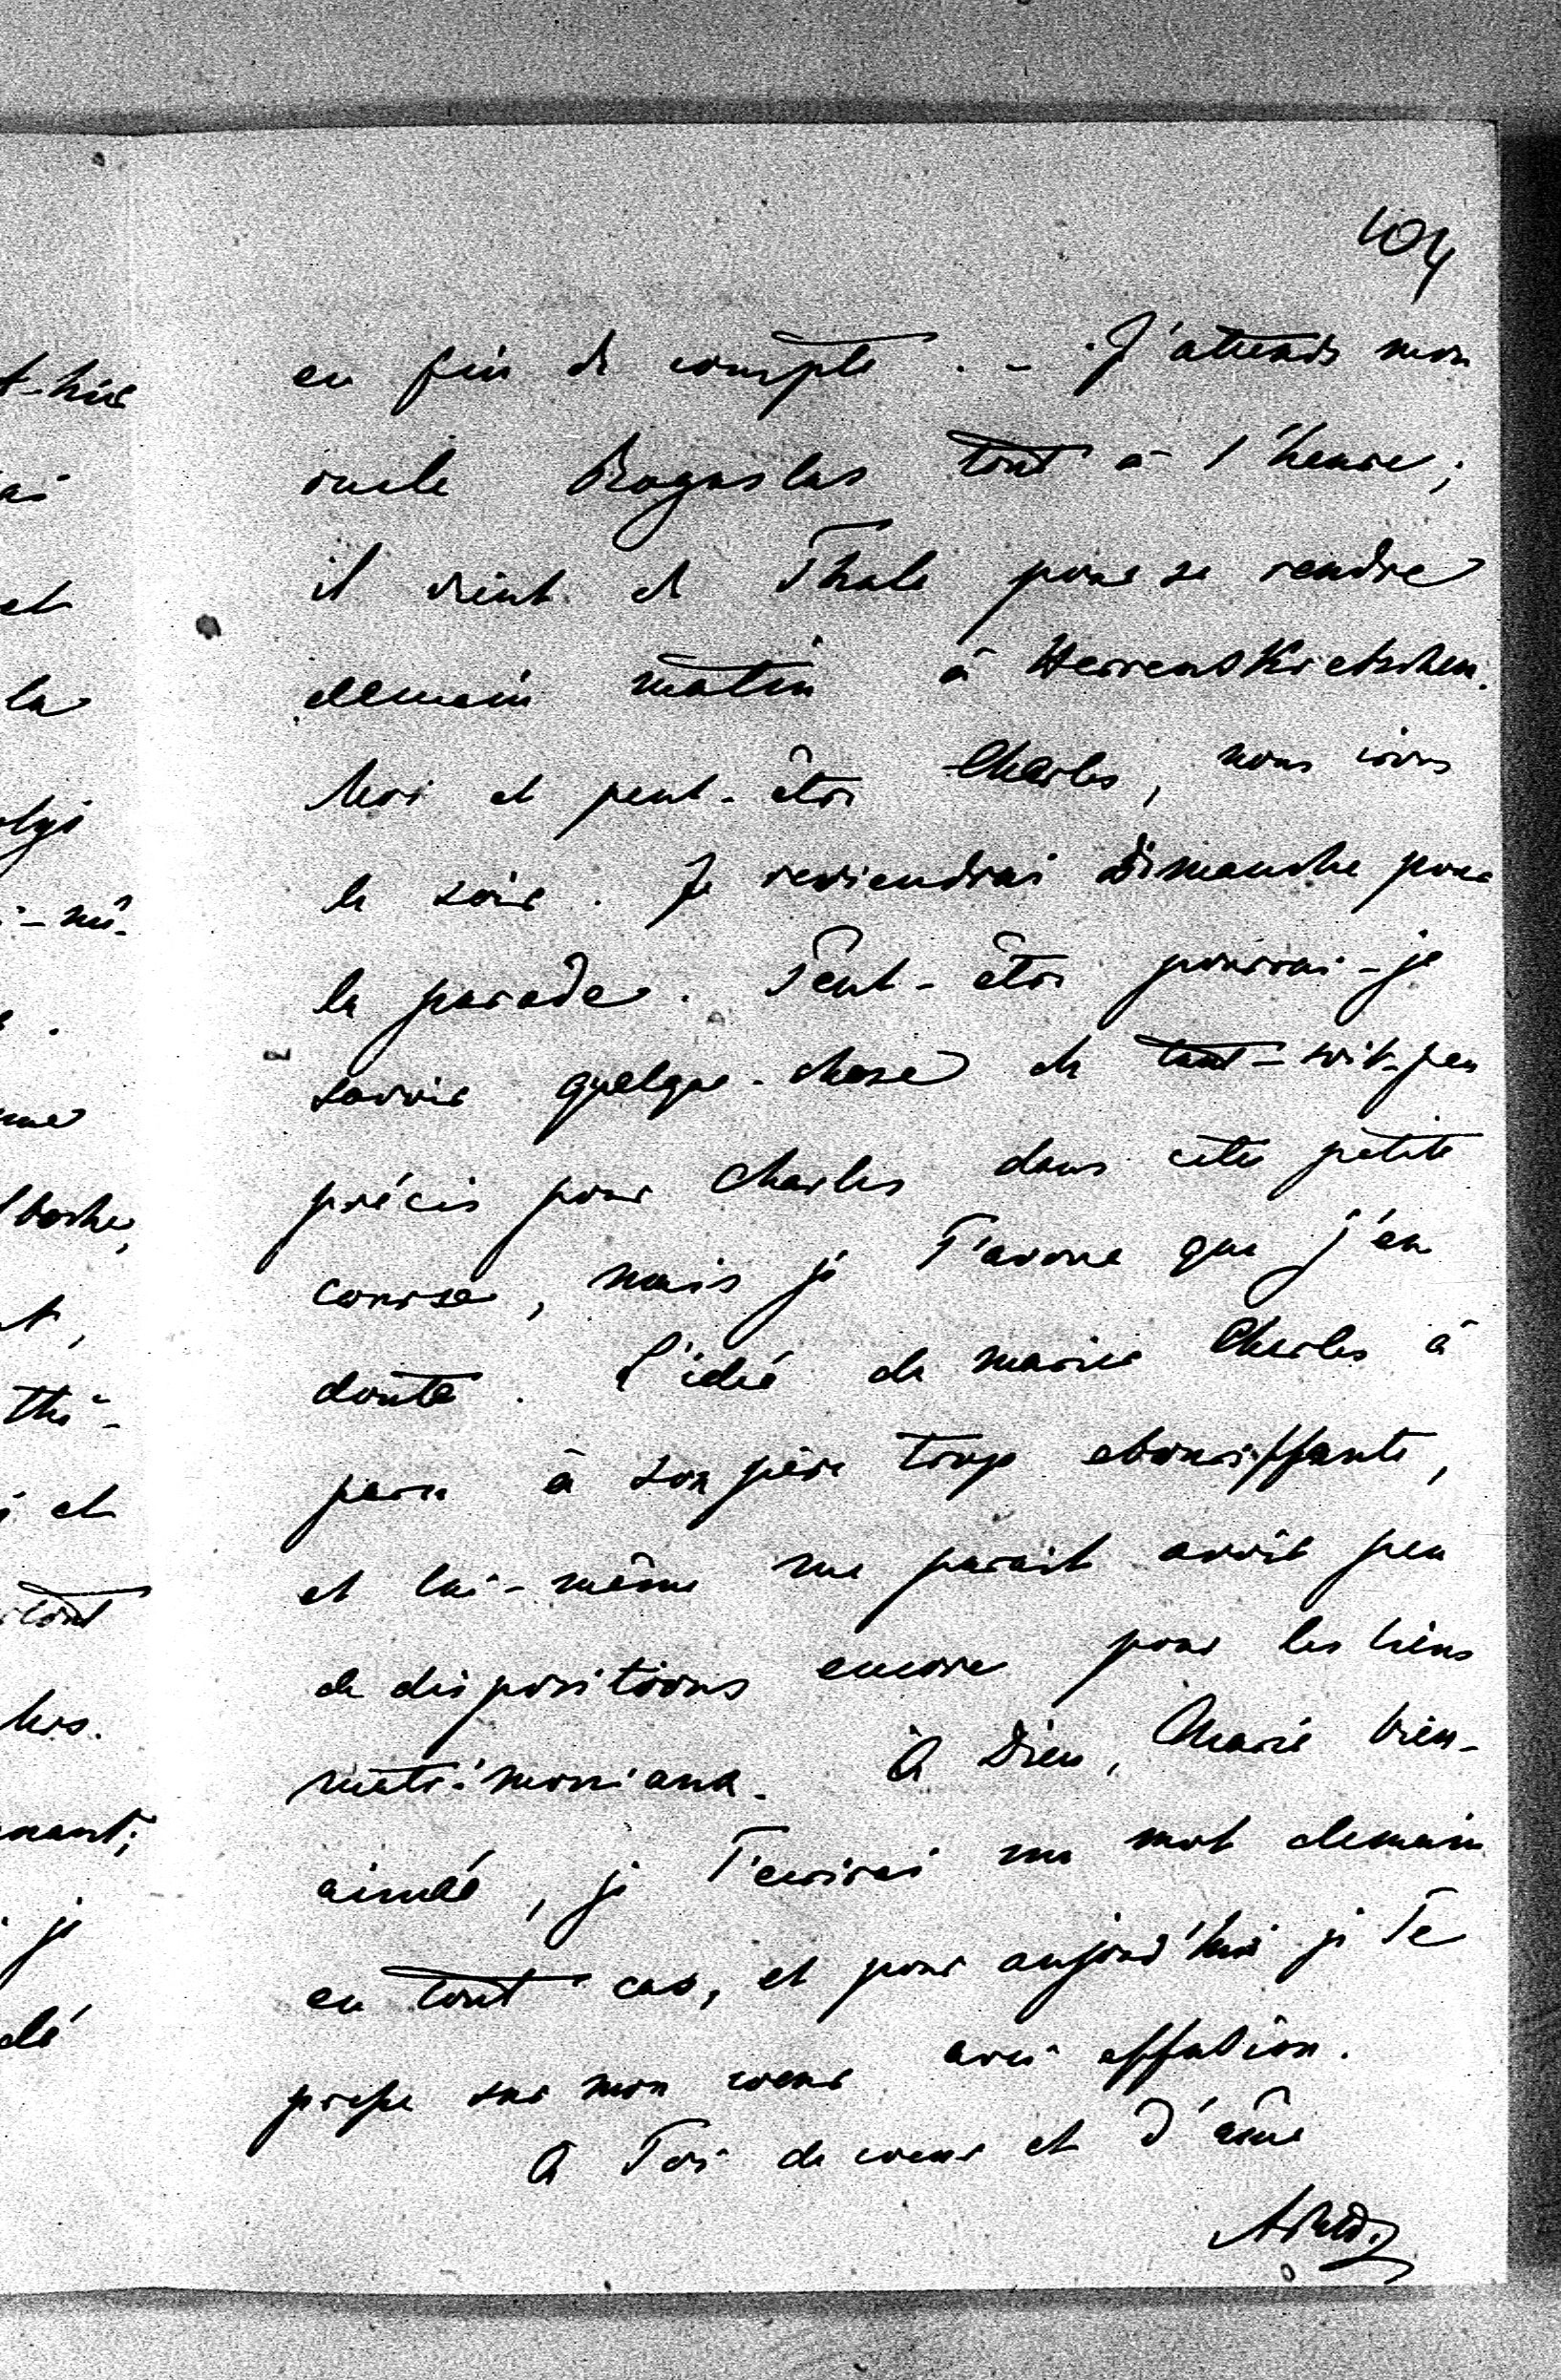 104
en fin de compte. - J'attends mon
oncle Boguslas tout à l'heure;
il vient de Thale pour se rendre
demain matin à Herrenskretschen.
Moi et peut-être Charles, nous irons
le soir. Je reviendrai Dimanche pour
la parade. Peut-être pourrai-je
savoir quelque-chose de tant-soit-peu
précis pour Charles dans cette petite
course, mais je T'avoue que j'en
doute. L'idée de marier Charles à
paru à son père trop ebouriffante,
et lui-même me parait avoir peu
de dispositions encore pour les liens
matrimoniaux. A Dieu, Marie bien-
aimée, je T'ecrirai un mot demain
en tout cas, et pour aujourd'hui je Te
presse sur mon coeur avec effusion.
A Toi de coeur et d'âme